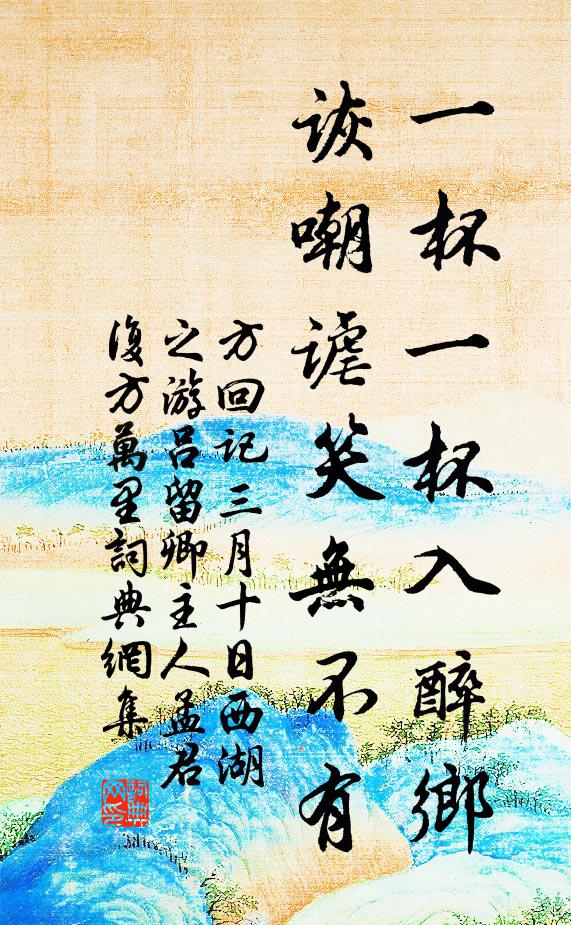 一杯一杯入醉鄉
詼嘲謔笑無不有
方回記三月十日西湖
之游呂留卿主人孟君
復方萬里詞典網集